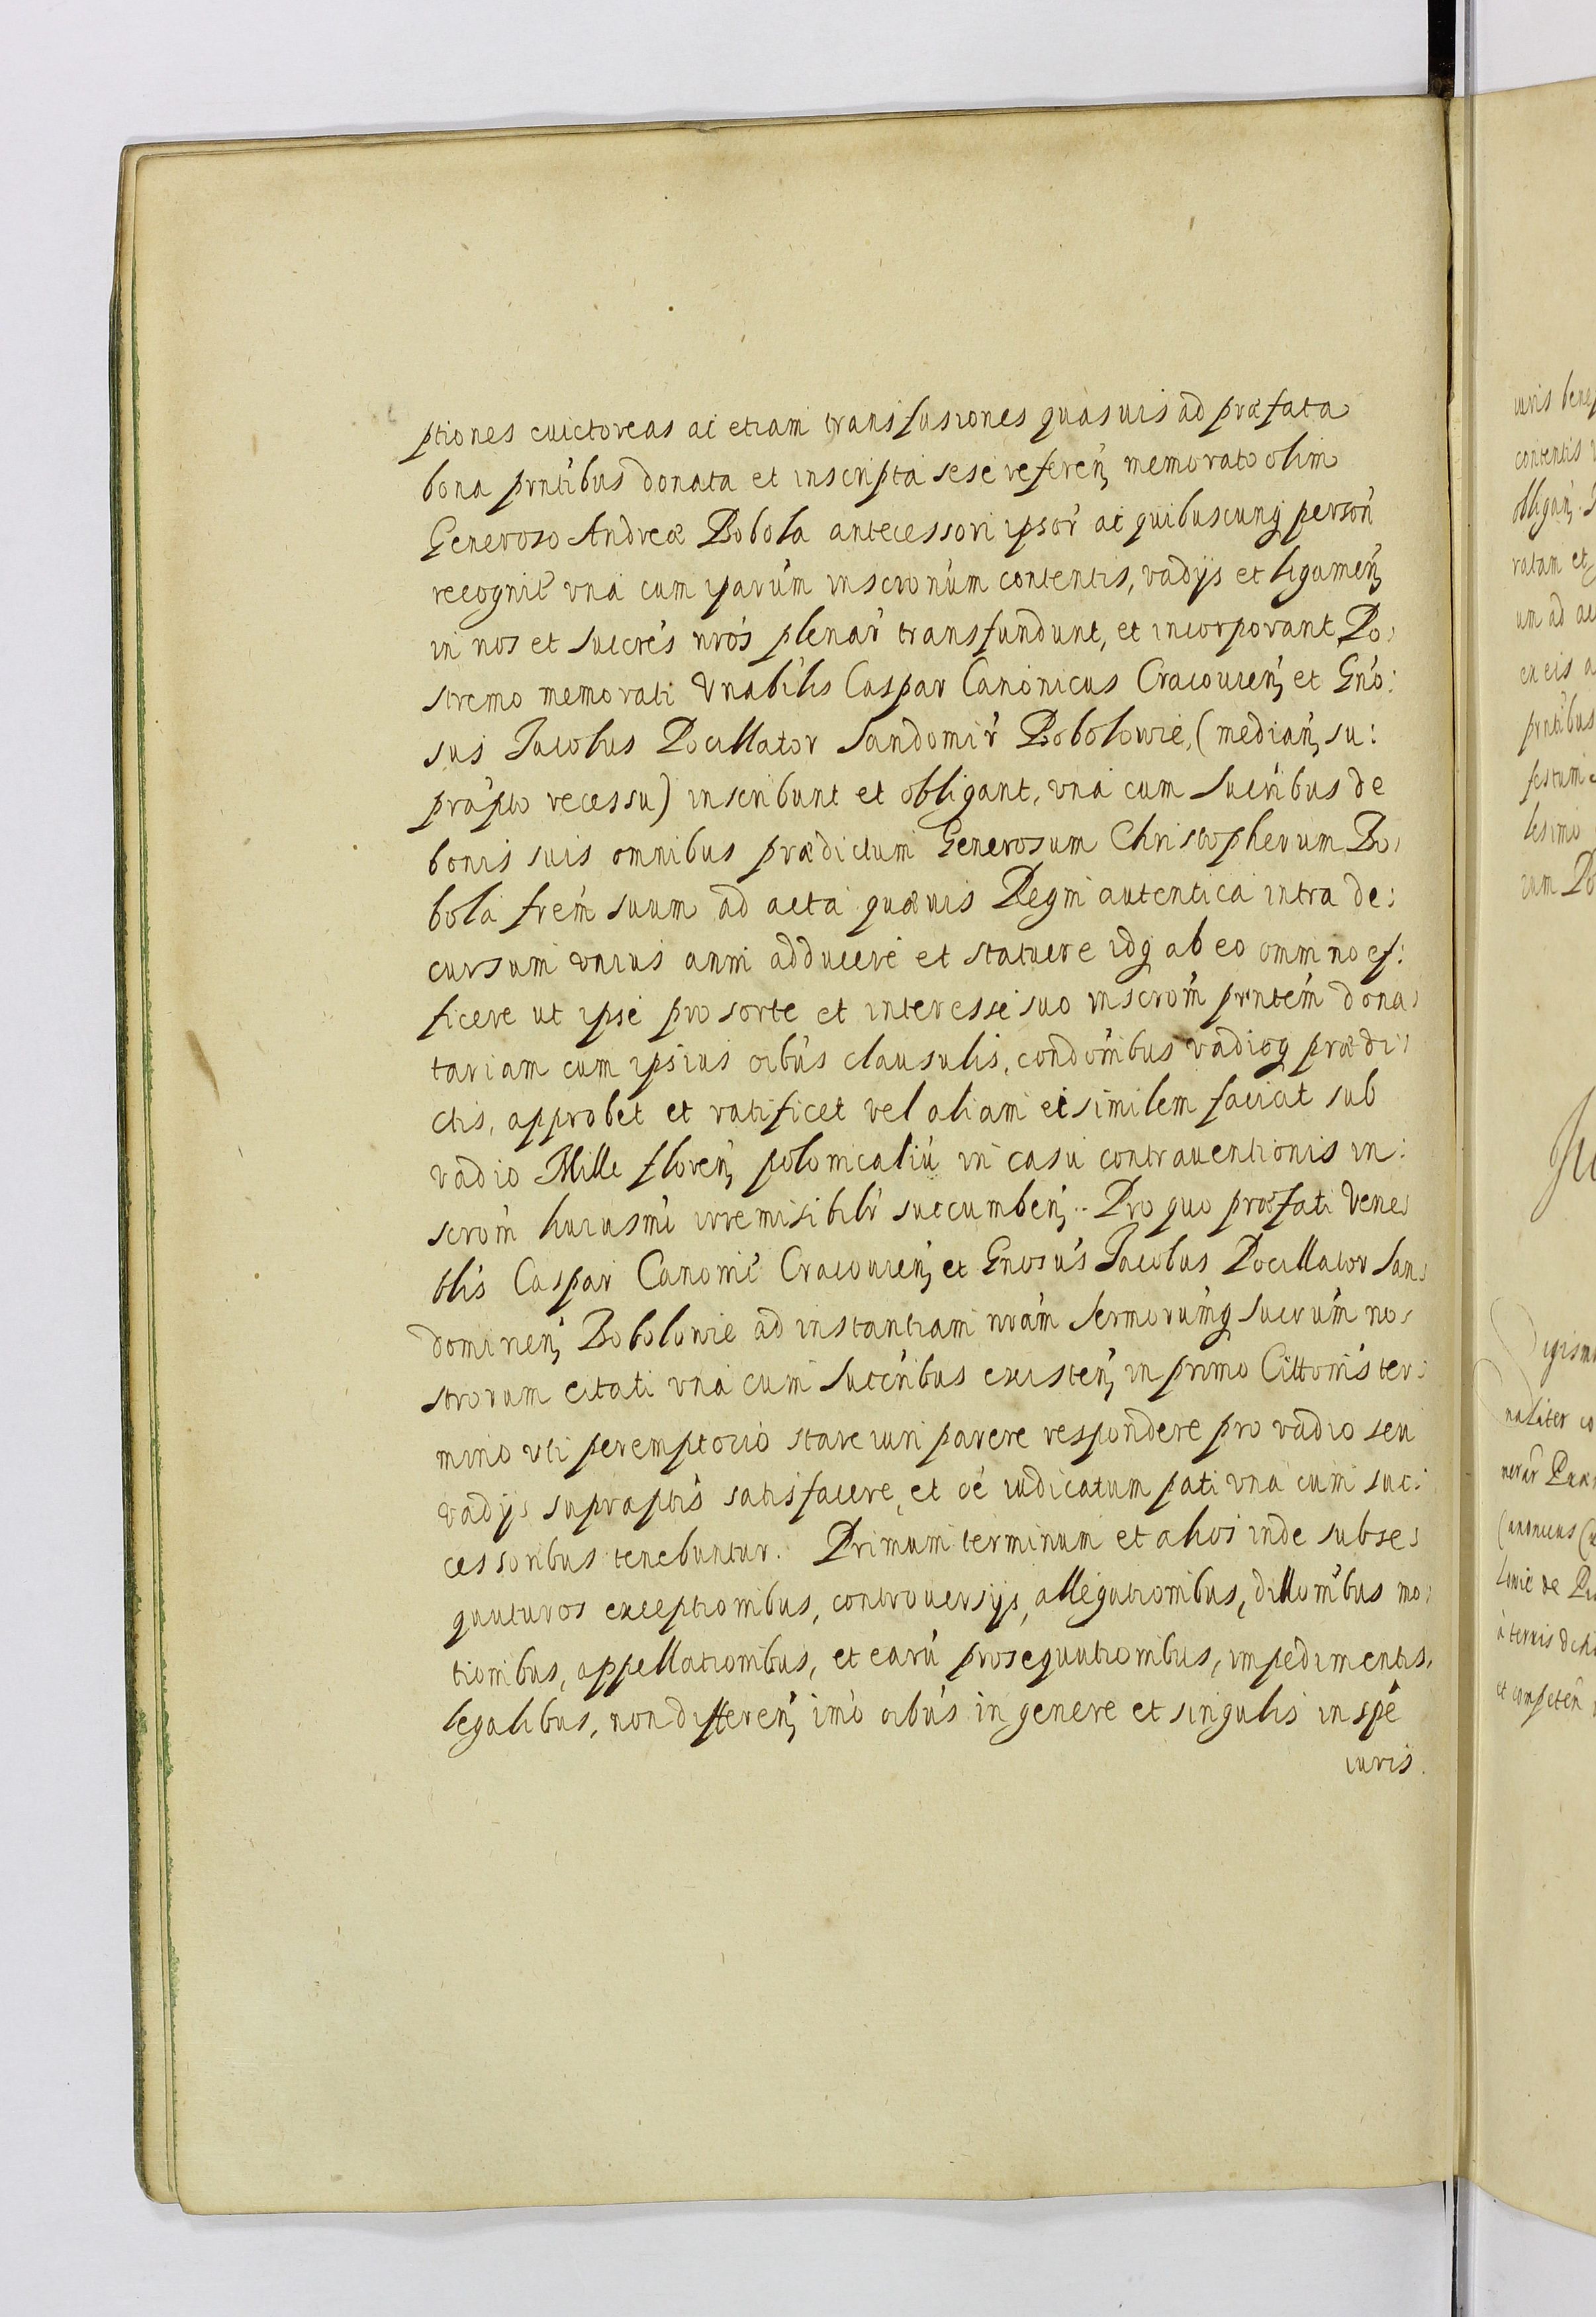 ptiones euictoreas ac etiam transfusiones quasuis ad præfata
bona prntibus donata et inscripta sese referen, memorato olim
Generoso Andreæ Bobola antecessori ipsor ac quibuscunq person
recognit vna cum iparum inscrionum contentis, vadijs et ligamen,
in nos et succres nros plenar transfundunt, et incorporant Po:
stremo memorati Vnabilis Caspar Canonicus Cracouien, et Gno:
sus Jacobus Pocillator Sandomir Bobolowie, (median, su:
prapto recessu) inscribunt et obligant, vna cum Succribus de
bonis suis omnibus prædictum Generosum Christopherum Bo:
bola frem suum ad acta quæuis Regni autentica intra de:
cursum vnius anni adducere et statuere idq ab eo omnino ef:
ficere ut ipse pro sorte et interesse suo inscrom prntem dona:
tariam cum ipsius oibus clausulis, condonibus vadioq prædi:
ctis, approbet et ratificet vel aliam ei similem faciat sub
vadio Mille floren, polonicaliu in casu contrauentionis in:
scrom huiusmi irremisibilr succumben,.. Pro quo præfati Vene:
blis Caspar Canonic Cracouien, et Gnosus Jacobus Pocillator San:
domirien, Bobolowie ad instantiam nram Sermorumq sucrum no:
strorum citati vna cum Succribus existen, in primo Cittonis ter:
mino vti peremptorio stare iuri parere respondere pro vadio seu
vadijs supraptis satisfacere, et oe iudicatum pati vna cum suc:
cessoribus tenebuntur. Primum terminum et alios inde subse:
quuturos exceptionibus, controuersijs, allegationibus, dillonibus mo:
tionibus, appellationibus, et earu prosequutionibus, impedimentis,
legalibus, non differen, imo oibus in genere et singulis in spe
iuris.